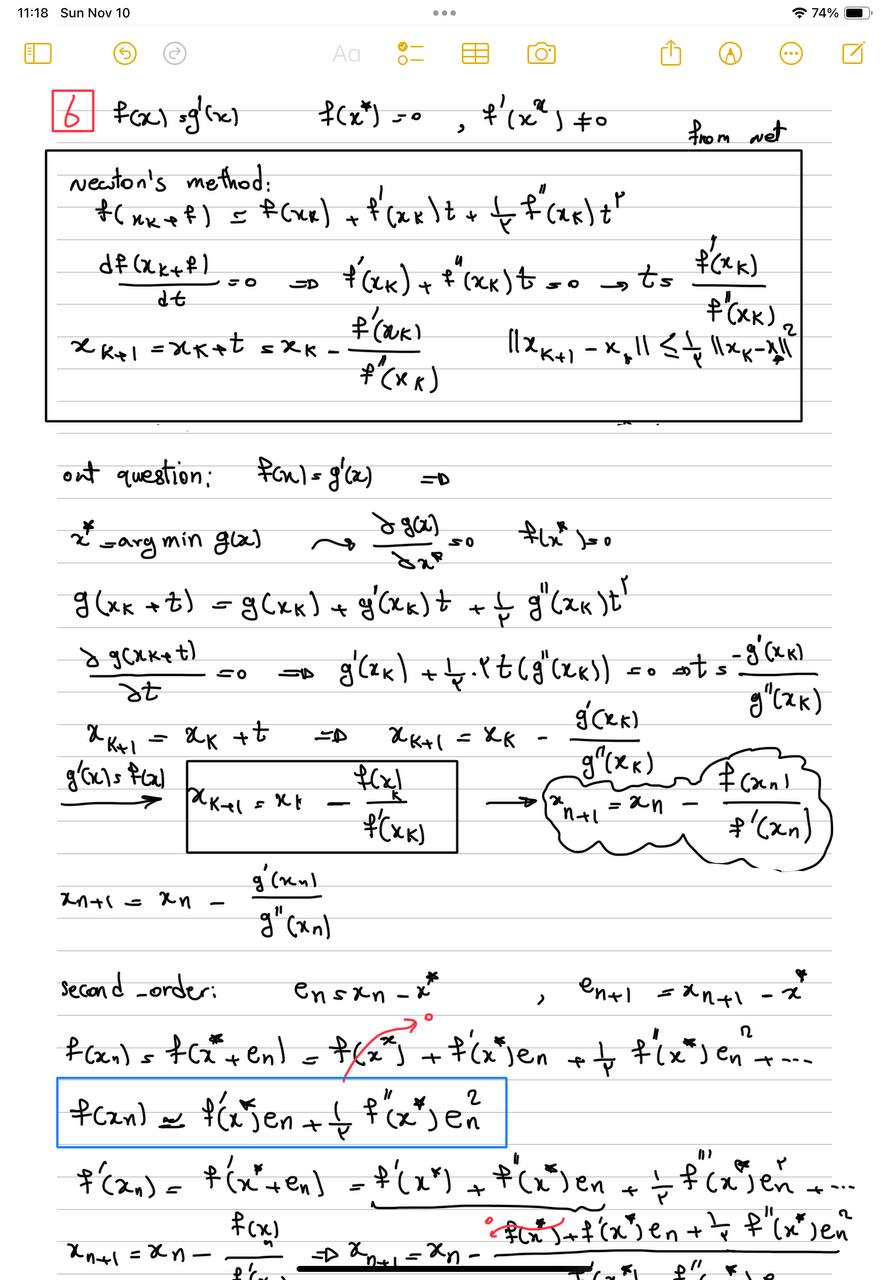 11:18 Sun Nov 10 74%
Aa
6 f(x) = g'(x) f(x*) = 0 , f'(x*) ≠ 0
from net
Newton's method:
f(xₖ+t) = f(xₖ) + f'(xₖ)t + 1/۲ f''(xₖ)t^۲
df(xₖ+t)/dt = 0 ⇒ f'(xₖ) + f''(xₖ)t = 0 → t = f'(xₖ)/f''(xₖ)
xₖ₊₁ = xₖ+t = xₖ - f'(xₖ)/f''(xₖ) ||xₖ₊₁ - x*|| ≤ 1/۲ ||xₖ - x*||²
out question: f(x) = g'(x) ⇒
x* = arg min g(x) ⇝ ∂g(x)/∂x* = 0 f(x*) = 0
g(xₖ + t) = g(xₖ) + g'(xₖ)t + 1/۲ g''(xₖ)t^۲
∂g(xₖ+t)/∂t = 0 ⇒ g'(xₖ) + 1/۲ . ۲t(g''(xₖ)) = 0 ⇒ t = -g'(xₖ)/g''(xₖ)
xₖ₊₁ = xₖ + t ⇒ xₖ₊₁ = xₖ - g'(xₖ)/g''(xₖ)
g'(x) = f(x) → xₖ₊₁ = xₖ - f(xₖ)/f'(xₖ) → xₙ₊₁ = xₙ - f(xₙ)/f'(xₙ)
xₙ₊₁ = xₙ - g'(xₙ)/g''(xₙ)
second-order: eₙ = xₙ - x* , eₙ₊₁ = xₙ₊₁ - x*
f(xₙ) = f(x* + eₙ) = f(x*) → 0 + f'(x*)eₙ + 1/۲ f''(x*)eₙ^۲ + ...
f(xₙ) ≃ f'(x*)eₙ + 1/۲ f''(x*)eₙ²
f'(xₙ) = f'(x* + eₙ) = f'(x*) + f''(x*)eₙ + 1/۲ f'''(x*)eₙ^۲ + ...
xₙ₊₁ = xₙ - f(xₙ)/ ⇒ xₙ₊₁ = xₙ - 0 f(x*) + f'(x*)eₙ + 1/۲ f''(x*)eₙ^۲